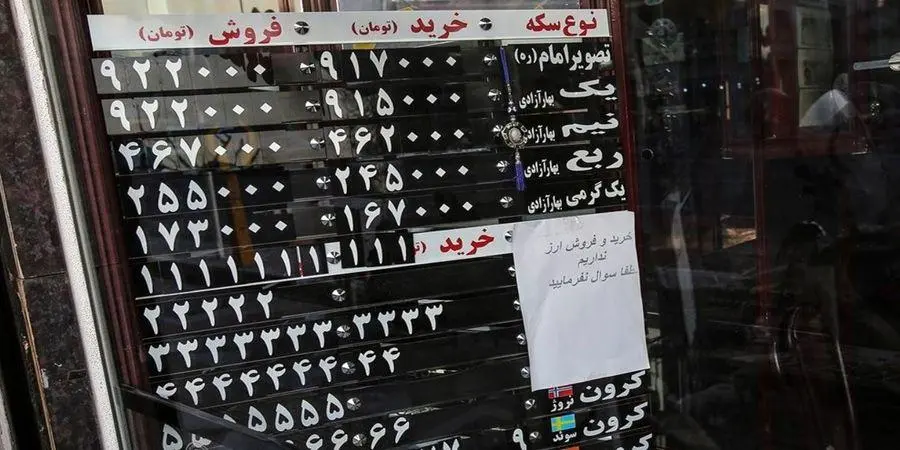 نوع سکه خرید (تومان) فروش (تومان)
تصویر امام (ره) ۹۱۷۰۰۰ ۹۲۲۰۰۰
یک بهارآزادی ۹۱۵۰۰۰ ۹۲۲۰۰۰
نیم بهارآزادی ۴۶۲۰۰۰ ۴۶۷۰۰۰
ربع بهارآزادی ۲۴۵۰۰۰ ۲۵۵۰۰۰
یک گرمی بهارآزادی ۱۶۷۰۰۰ ۱۷۳۰۰۰
خرید
۱۱۱
۲۲۲۲۲
۳۳۳۳ ۳۳۳۳۳۳
۴۴ ۴۴۴۴۴
خرید و فروش ارز
نداریم
لطفا سوال نفرمایید
کرون نروژ ۵۵۵۵
کرون سوئد